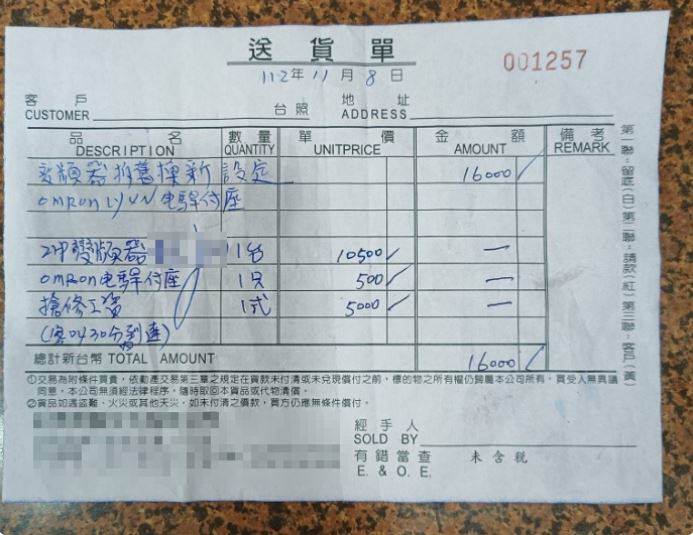 送貨單
112年11月8日
001257
客戶 台照 地址
CUSTOMER ADDRESS
品名 數量 單價 金額 備考
DESCRIPTION QUANTITY UNITPRICE AMOUNT REMARK
變頻器拆舊換新 設定 16000
omron LY4N 电驛付座
2HP變頻器 1台 10500 —
omron电驛付座 1只 500 —
搶修工資 1式 5000 —
(客 30分到達)
總計新台幣 TOTAL AMOUNT 16000
①交易為附條件買賣,依動產交易第三章之規定在貨款未付清或未兌現償付之前,標的物之所有權仍歸屬本公司所有,買受人無異議
同意,本公司無須經法律程序,隨時取回本貨品或代物清償。
②貨品如遇盜難、火災或其他天災,如未付清之價款,買方仍應無條件償付。
經手人
SOLD BY
有錯當查 未含稅
E. & O. E.
第一聯:留底(白)第二聯:請款(紅)第三聯:客戶(黃)